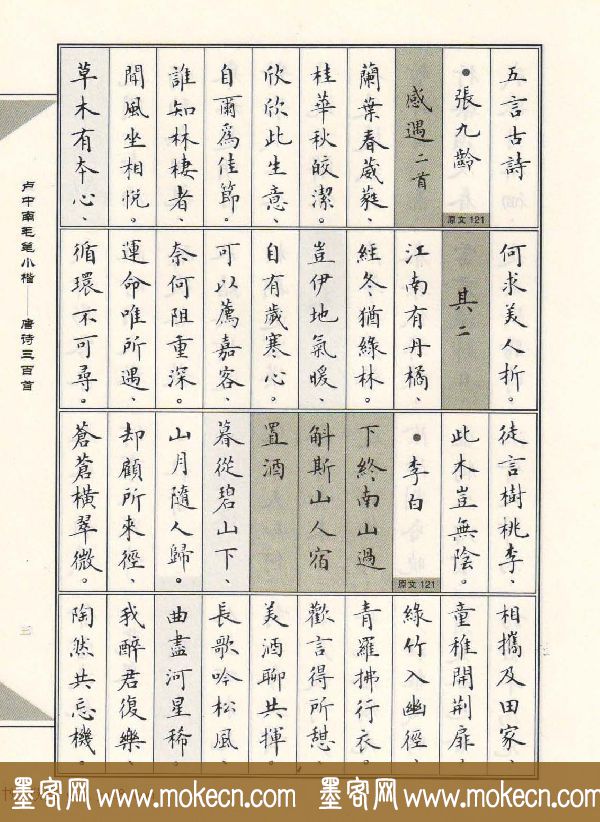 五言古詩、
●張九齡
感遇二首
原文121
蘭葉春葳蕤、
桂華秋皎潔。
欣欣此生意、
自爾爲佳節。
誰知林棲者、
聞風坐相悅。
草木有本心、
何求美人折。
其二
江南有丹橘、
經冬猶綠林。
豈伊地氣暖、
自有歲寒心。
可以薦嘉客、
奈何阻重深。
運命唯所遇、
循環不可尋。
徒言樹桃李、
此木豈無陰。
●李白
原文121
下終南山過
斛斯山人宿
置酒
暮從碧山下、
山月隨人歸。
却顧所來徑、
蒼蒼橫翠微。
相攜及田家、
童稚開荆扉。
綠竹入幽徑、
青羅拂行衣。
歡言得所憩、
美酒聊共揮。
長歌吟松風、
曲盡河星稀。
我醉君復樂、
陶然共忘機。
卢中南毛笔小楷——唐诗三百首
三
墨客网 www.mokecn.com 墨客网 www.mokecn.com